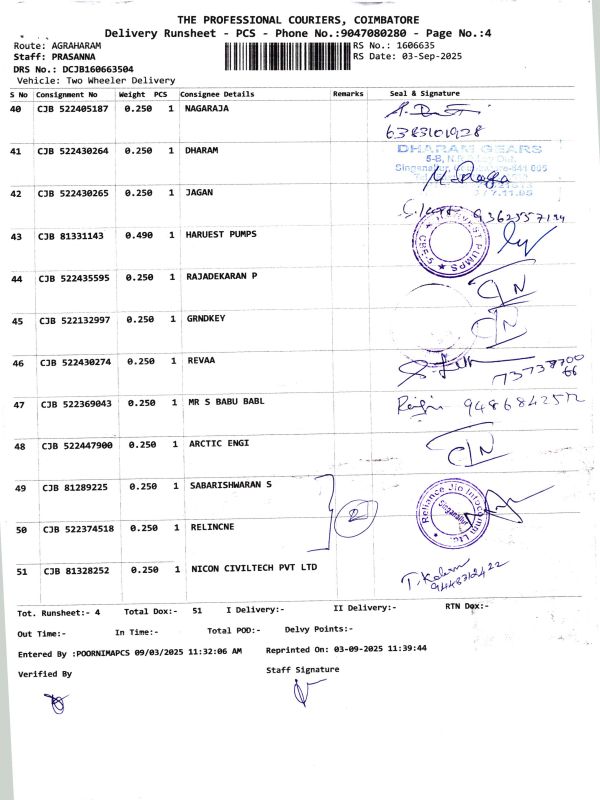 THE PROFESSIONAL COURIERS, COIMBATORE
Delivery Runsheet - PCS - Phone No.:9047080280 - Page No.:4
Route: AGRAHARAM RS No.: 1606635
Staff: PRASANNA RS Date: 03-Sep-2025
DRS No.: DCJB160663504
Vehicle: Two Wheeler Delivery
S No Consignment No Weight PCS Consignee Details Remarks Seal & Signature
40 CJB 522405187 0.250 1 NAGARAJA
6383101928
41 CJB 522430264 0.250 1 DHARAM DHARAM GEARS
42 CJB 522430265 0.250 1 JAGAN
43 CJB 81331143 0.490 1 HARUEST PUMPS
44 CJB 522435595 0.250 1 RAJADEKARAN P
45 CJB 522132997 0.250 1 GRNDKEY
46 CJB 522430274 0.250 1 REVAA
47 CJB 522369043 0.250 1 MR S BABU BABL
48 CJB 522447900 0.250 1 ARCTIC ENGI
49 CJB 81289225 0.250 1 SABARISHWARAN S
2 Reliance Jio Infocomm Ltd. Singanallur
50 CJB 522374518 0.250 1 RELINCNE
51 CJB 81328252 0.250 1 NICON CIVILTECH PVT LTD
Tot. Runsheet:- 4 Total Dox:- 51 I Delivery:- II Delivery:- RTN Dox:-
Out Time:- In Time:- Total POD:- Delvy Points:-
Entered By :POORNIMAPCS 09/03/2025 11:32:06 AM Reprinted On: 03-09-2025 11:39:44
Verified By Staff Signature